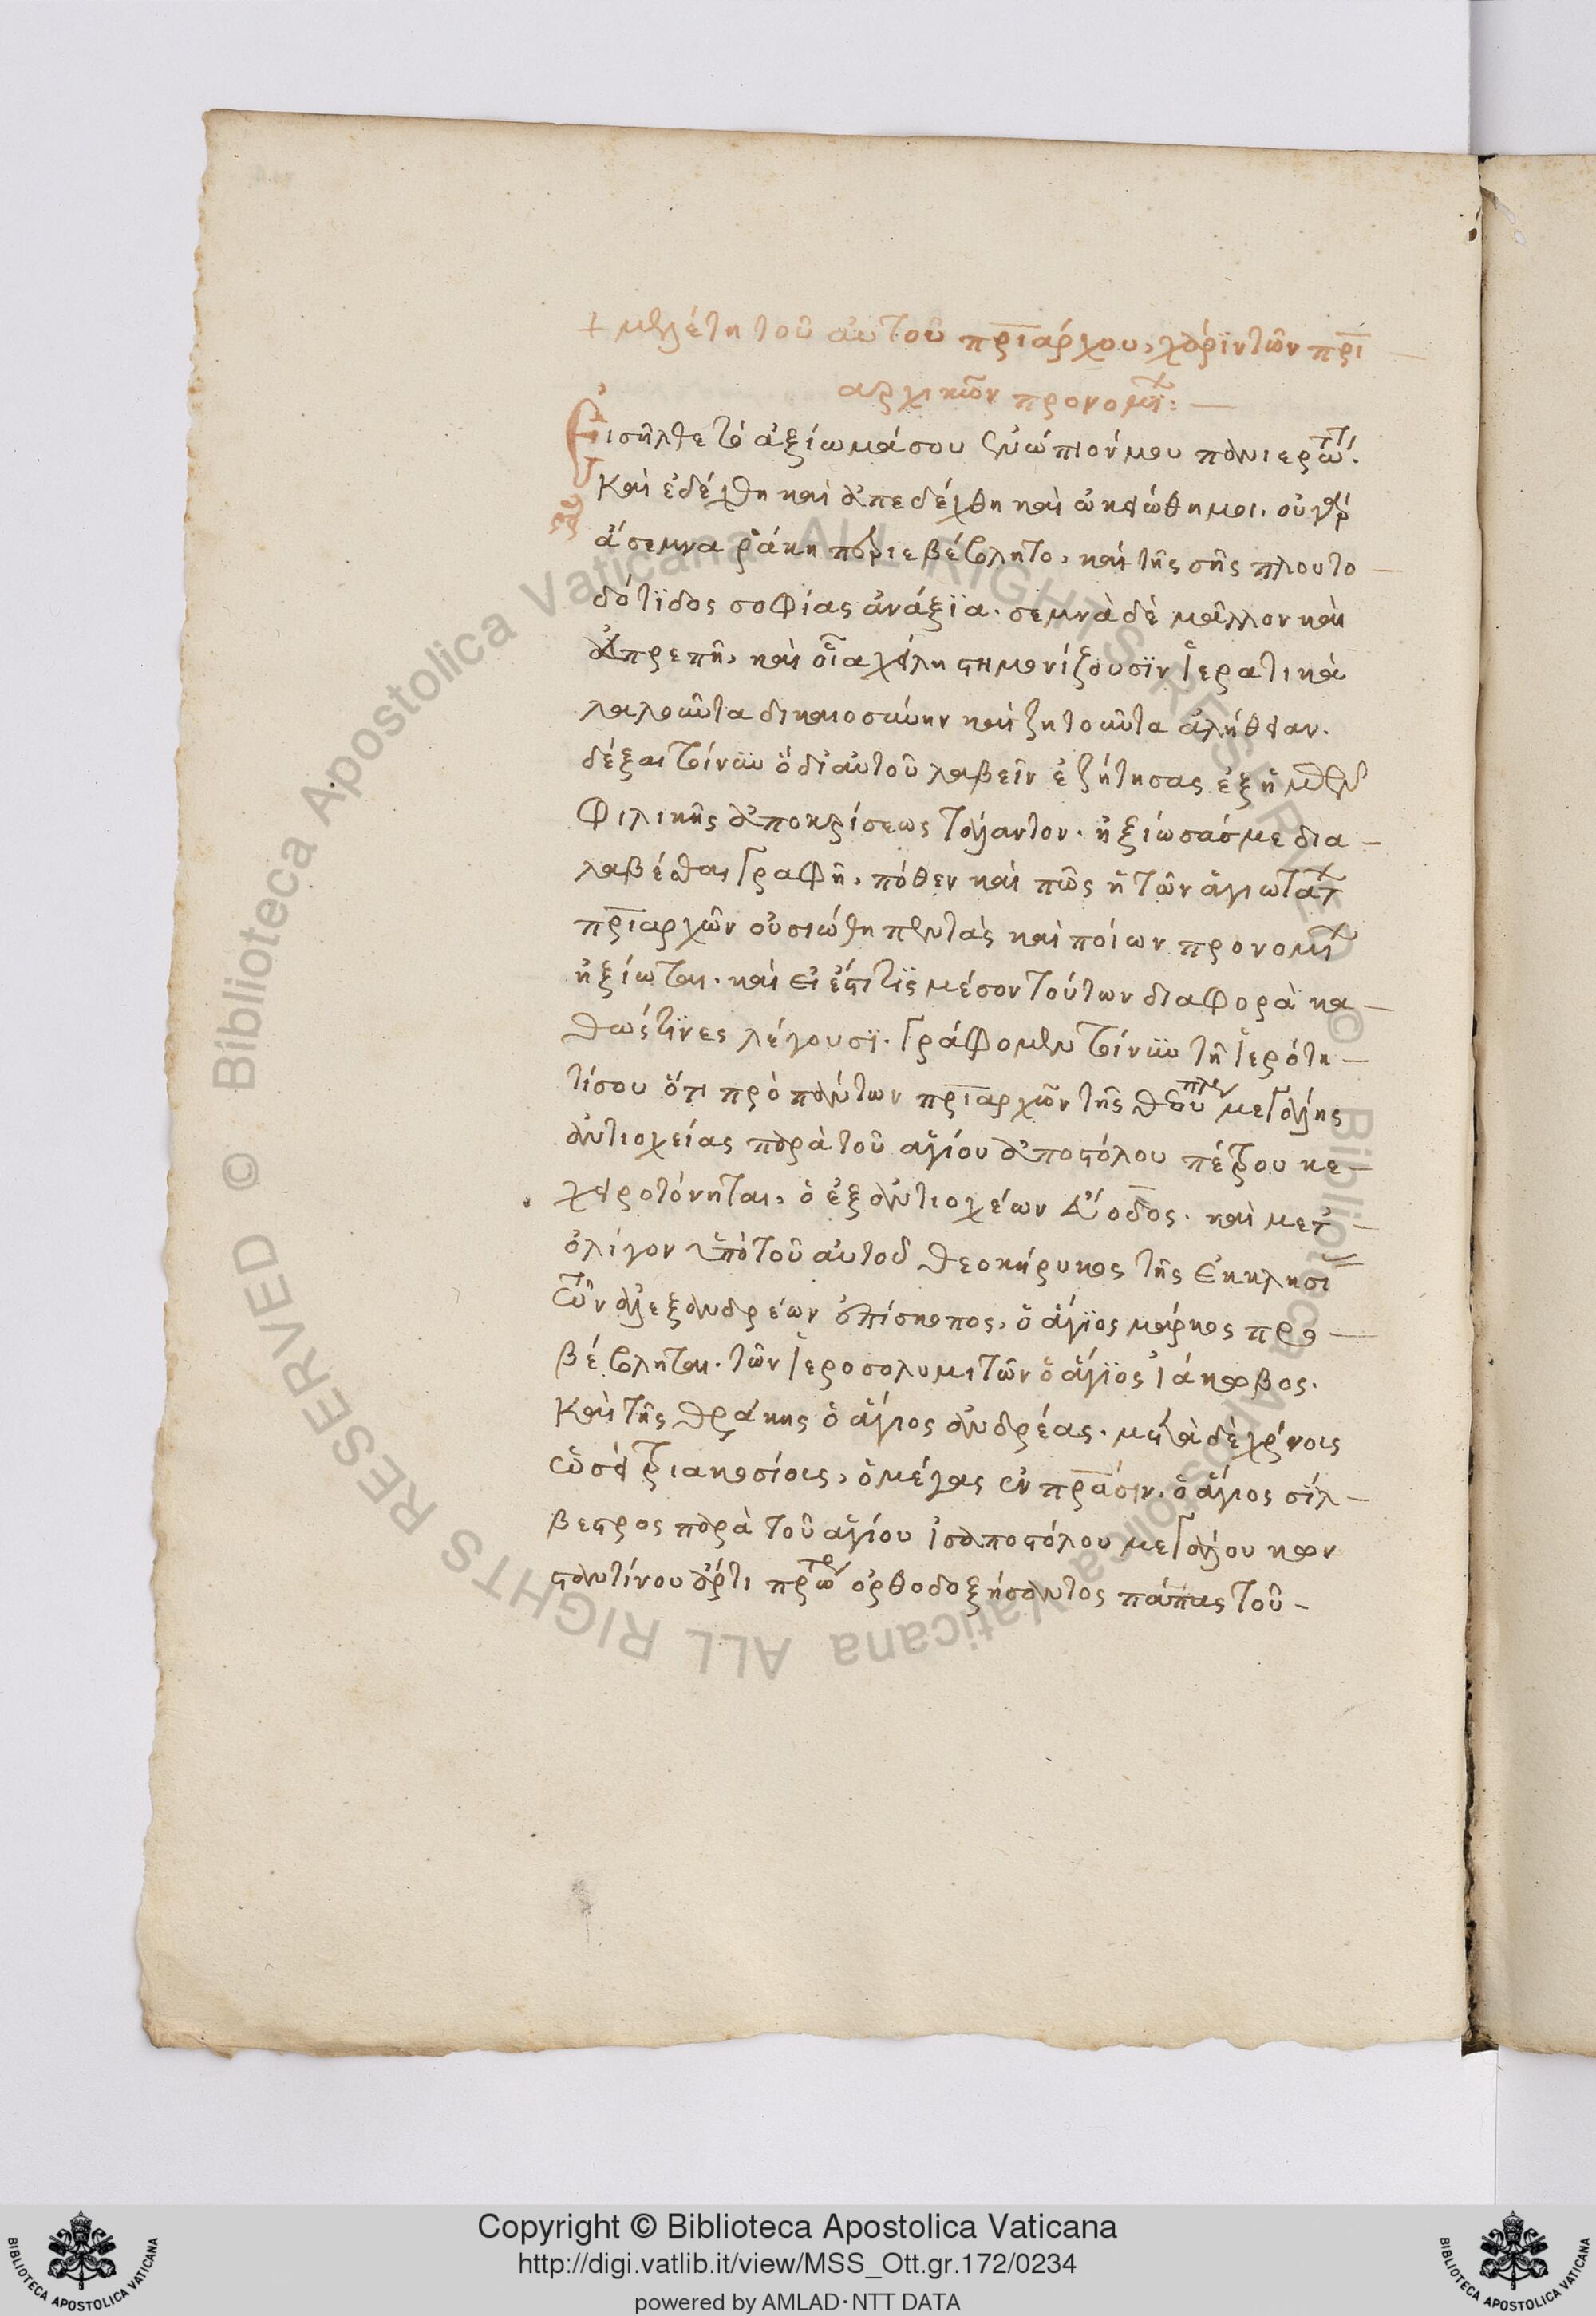 + μελέτη τοῦ αὐτοῦ πρϊάρχου, χάρϊν τῶν πρϊ
αρχικῶν προνομί:
Εἰσῆλθε τὸ ἀξίωμά σου ἐνώπιόν μου πανιερώτ.
Καὶ ἐδέχθη καὶ ἀπεδέχθη καὶ ὠκειώθη μοι. οὐ γὰρ
ἄσεμνα ῥάκη περιεβέβλητο, καὶ τῆς σῆς πλουτο
δότϊδος σοφίας ἀνάξϊα. σεμνὰ δὲ μᾶλλον καὶ
ἀπρεπῆ, καὶ οἷα χείλη στημονίζουσϊν ἱερατικὰ
λαλοῦντα δικαιοσύνην καὶ ζητοῦντα ἀλήθειαν.
δέξαι τοίνυν ὃ δι αὐτοῦ λαβεῖν ἐζήτησας ἐξ ἡμῶν
φιλικῆς ἀποκρίσεως τάλαντον. ἠξίωσάς με δια
λαβέσθαι γραφῇ, πόθεν καὶ πῶς ἡ τῶν ἁγιωτάτ
πρϊαρχῶν οὐσιώθη πεντὰς καὶ ποίων προνομί
ἠξίωται. καὶ εἰ ἔστι τϊς μέσον τούτων διαφορὰ κα
θώς τϊνες λέγουσϊ. γράφομεν τοίνυν τῇ ἱερότη
τί σου ὅτι πρὸ πάντων πρϊαρχῶν τῆς θεουπόλεως μεγάλης
ἀντιοχείας παρὰ τοῦ ἁγίου ἀποστόλου πέτρου κε
χειροτόνηται, ὁ ἐξ ἀντιοχέων εὔοδος. καὶ μετ
ὀλίγον ὑπὸ τοῦ αὐτοῦ θεοκήρυκος τῆς ἐκκλησί
τῶν ἀλεξανδρέων ἐπίσκοπος, ὁ ἅγϊος μάρκος προ
βέβληται. τῶν ἱεροσολυμιτῶν ὁ ἅγϊος ἰάκωβος.
Καὶ τῆς θράκης ὁ ἅγιος ἀνδρέας. μετὰ δὲ χρόνοις
ὡσεὶ τριακοσίοις, ὁ μέγας ἐν πρᾶσιν. ὁ ἅγιος σίλ
βεστρος παρὰ τοῦ ἁγίου ἰσαποστόλου μεγάλου κων
σταντίνου ἄρτι πρώτως ὀρθοδοξήσαντος πάπας τοῦ
Copyright © Biblioteca Apostolica Vaticana
http://digi.vatlib.it/view/MSS_Ott.gr.172/0234
powered by AMLAD·NTT DATA